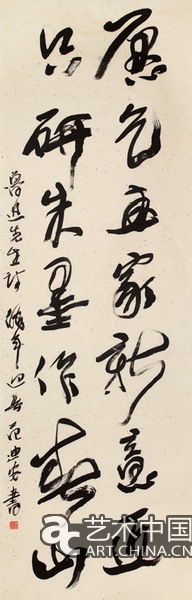 愿乞画家新意匠
只研朱墨作春山
鲁迅先生诗 猴年迎春 范迪安书
艺术中国
ART.CHINA.CN